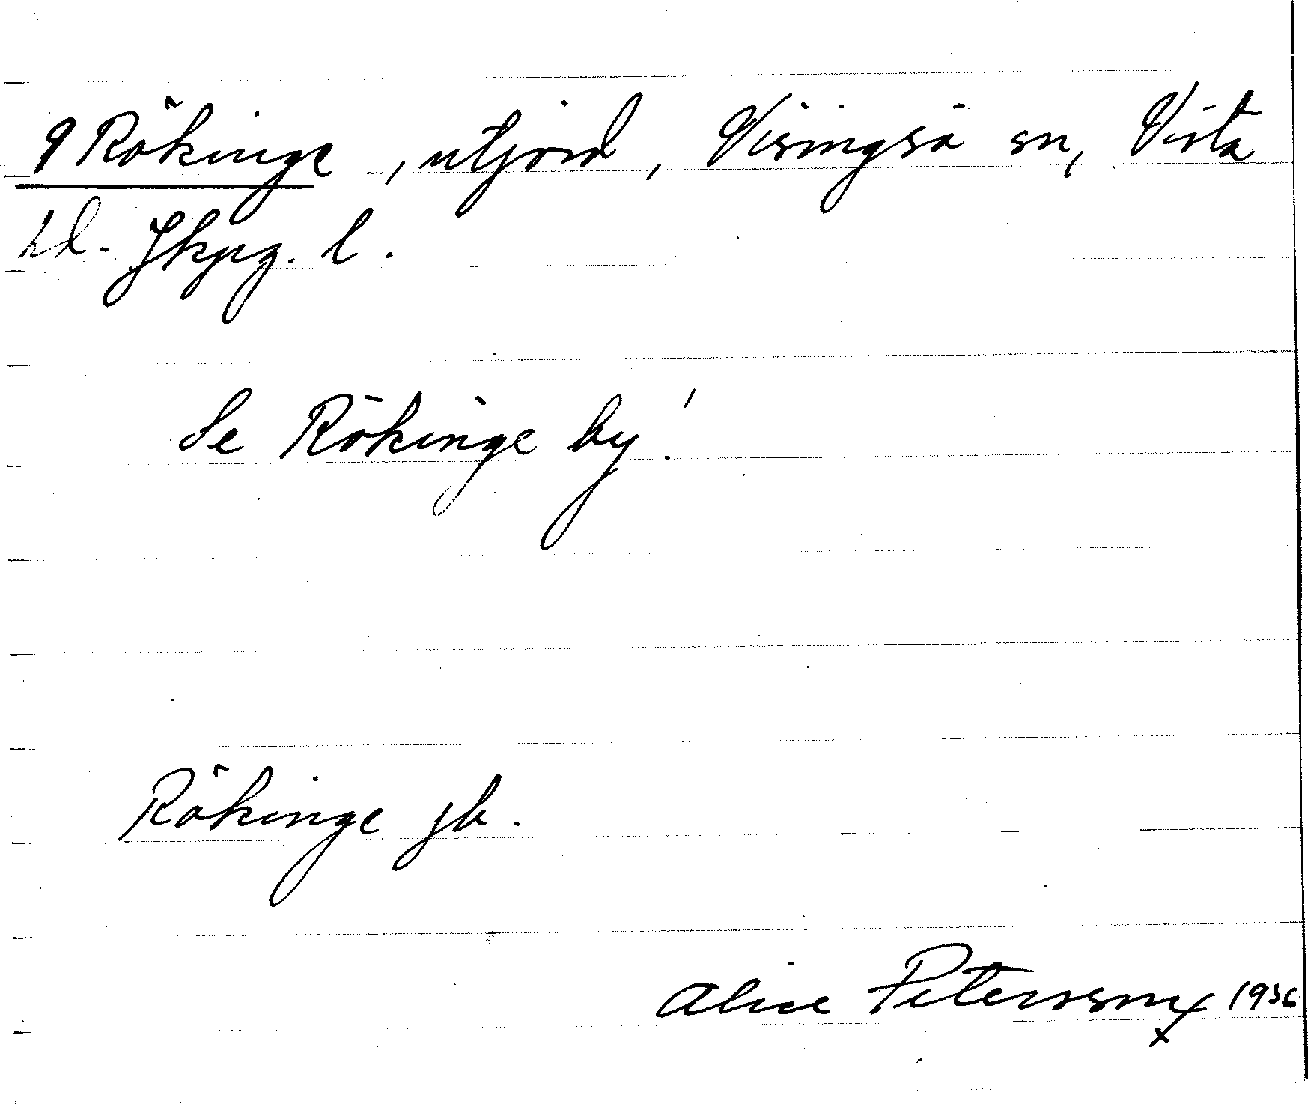 9 Rökinge, utjord, Visingsö sn, Vista
hd. Jkpg. l.
Se Rökinge by!
Rökinge jb.
Alice Petersson 1936